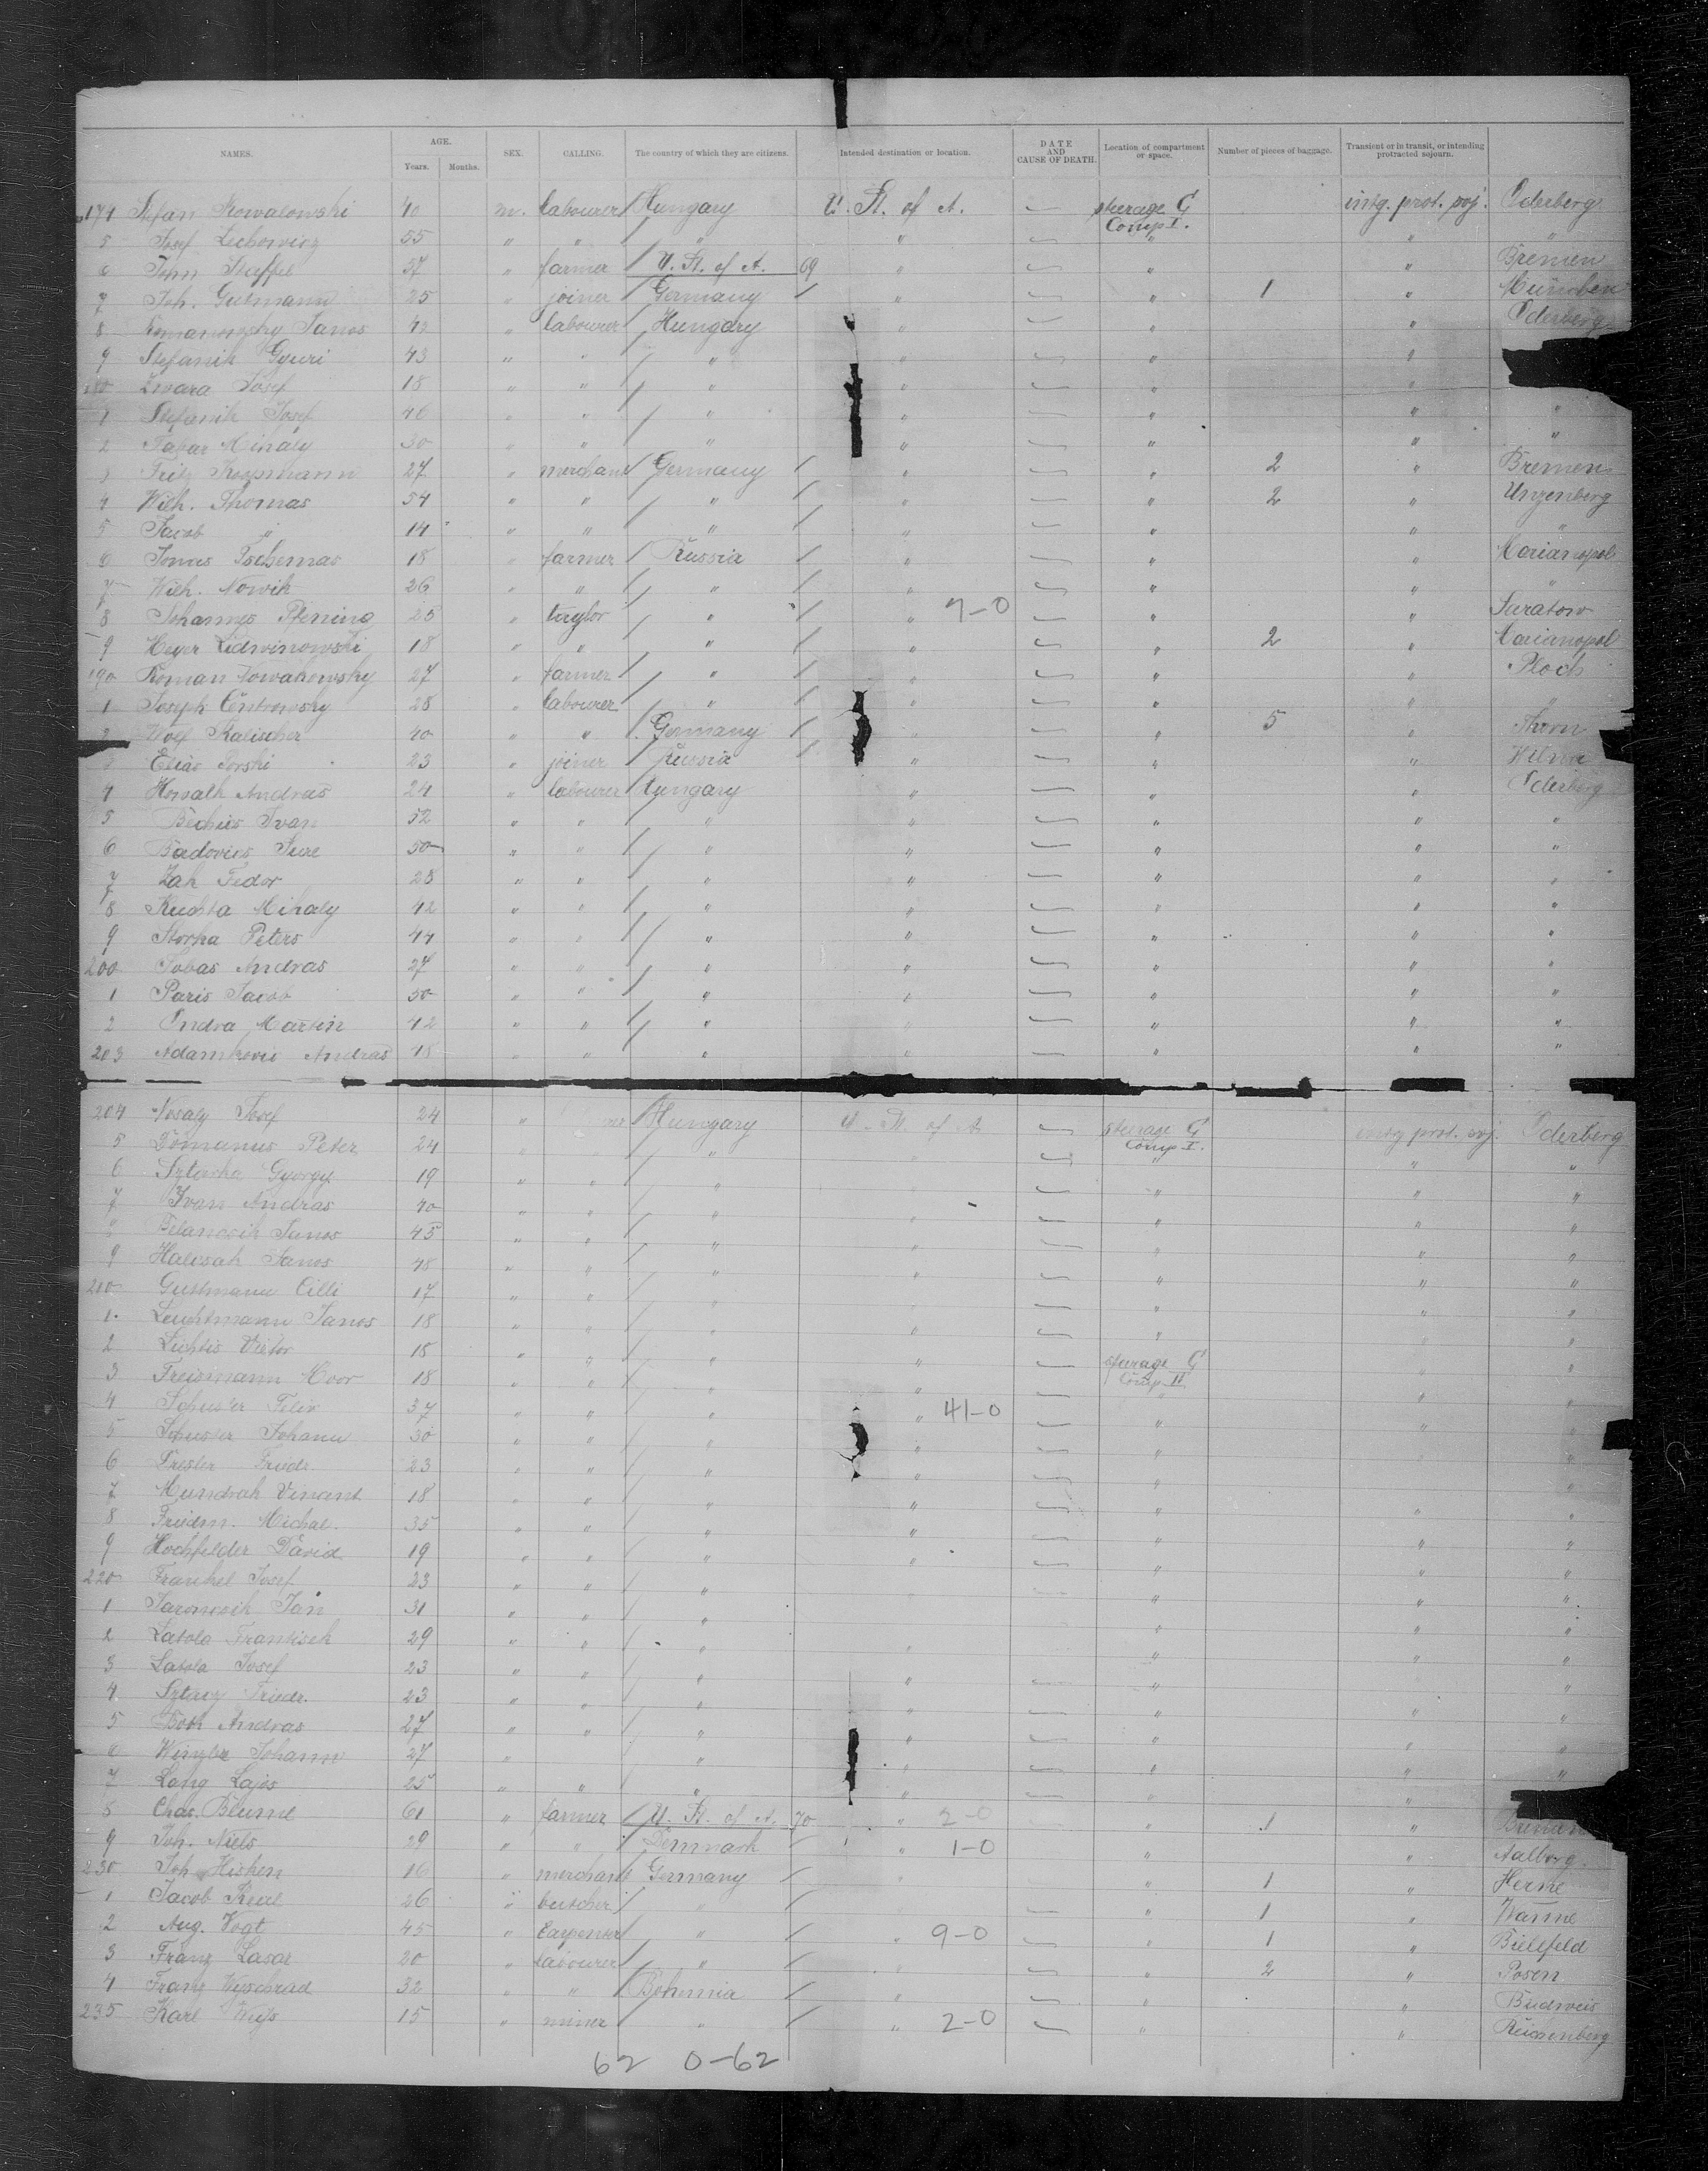 NAMES. AGE. Years. Months. SEX. CALLING. The country of which they are citizens. Intended destination or location. DATE AND CAUSE OF DEATH. Location of compartment or space. Number of pieces of baggage. Transient or in transit, or intending protracted sojourn.
174 Stefan Kowalowski 40 m. labourer Hungary U. St. of A. steerage G Comp I. intg. prot. soj. Oderberg
5 Josef Lechowicz 55 " " " " " " "
6 John Staffel 37 " farmer U. St. of A. 69 " " " Bremen
7 Joh. Gutmann 25 " joiner Germany " " 1 " München
8 Romanowzky Janos 42 " labourer Hungary " " " Oderberg
9 Stefanik Gyuri 43 " " " " " "
180 Zwara Josef 18 " " " " " "
1 Stefanik Josef 46 " " " " " " "
2 Tabar Mihaly 30 " " " " " " "
3 Fritz 27 " merchant Germany " " 2 " Bremen
4 Wilh. Thomas 54 " " " " " 2 " Unzenberg
5 Jacob " 14 " " " " " " "
6 Jonas Tschemas 18 " farmer Russia " " " Marianopol
7 Wilh. Nowik 26 " " " " " " "
8 Johannes Pfening 25 " taylor " " 7-0 " " Saratow
9 Meyer Lidwinowski 18 " " " " " 2 " Marianopol
190 Roman Nowakowsky 27 " farmer " " " " Plock
1 Joseph Centrowsky 28 " labourer " " " " "
2 Wolf Kalischer 40 " " Germany " " 5 " Thorn
3 Elias Torski 23 " joiner Russia " " " Wilna
4 Horvath Andras 24 " labourer Hungary " " " Oderberg
5 Bechies Ivan 52 " " " " " " "
6 Badovics Jure 50 " " " " " " "
7 Zah Fedor 23 " " " " " " "
8 Kuchta Mihaly 42 " " " " " " "
9 Storka Peters 44 " " " " " " "
200 Sobas Andras 27 " " " " " " "
1 Paris Jacob 50 " " " " " " "
2 Ondra Martin 42 " " " " " " "
203 Adamkovic Andras 18 " " " " " " "
204 Nosaly Josef 24 " Hungary U. St. of A. steerage G Comp I. intg prot. soj. Oderberg
5 Romanus Peter 24 " " " " " "
6 Sztarka Gyorgy 19 " " " " " "
7 Ivan Andras 40 " " " " " " "
Belancsik Janos 45 " " " " " " "
9 Halcsak Janos 48 " " " " " " "
210 Gustmann Cilli 17 " " " " " "
1 Leuchtmann Janos 18 " " " " " " "
2 Lichtis Victor 18 " " " " steerage G Comp II "
3 Freismann Moor 18 " " " " " " "
4 Schuster Felix 37 " " " " 41-0 " " "
5 Schuster Johann 30 " " " " " "
6 Dresler Friedr. 23 " " " " " "
7 Mundrak Vincent 18 " " " " " "
8 Friedm. Michal. 35 " " " " " " "
9 Hochfelder David 19 " " " " " " "
220 Frankel Josef 23 " " " " " "
1 Jaroncsik Jan 31 " " " " " "
2 Latola Frantisek 29 " " " " " " "
3 Latola Josef 23 " " " " " " "
4 Friedr. 23 " " " " " " "
5 Both Andras 27 " " " " " " "
6 Johann 27 " " " " " "
7 Lang Lajos 25 " " " " "
8 Chas. Blume 61 " farmer U. St. of A. 70 " 2-0 " 1 " Bremen
9 Joh. Niels 29 " " Denmark " 1-0 " " Aalborg
230 Joh. 16 " merchant Germany " " 1 " Herne
1 Jacob 26 " butcher " " 1 " Wanne
2 Aug. Vogt 45 " Carpenter " " 9-0 " 1 " Bielefeld
3 Franz Lasar 20 " labourer " " " 2 " Posen
4 Franz Wyschrad 32 " " Bohemia " " " Budweis
235 Karl 15 " miner " " 2-0 " " Reichenberg
62 0-62